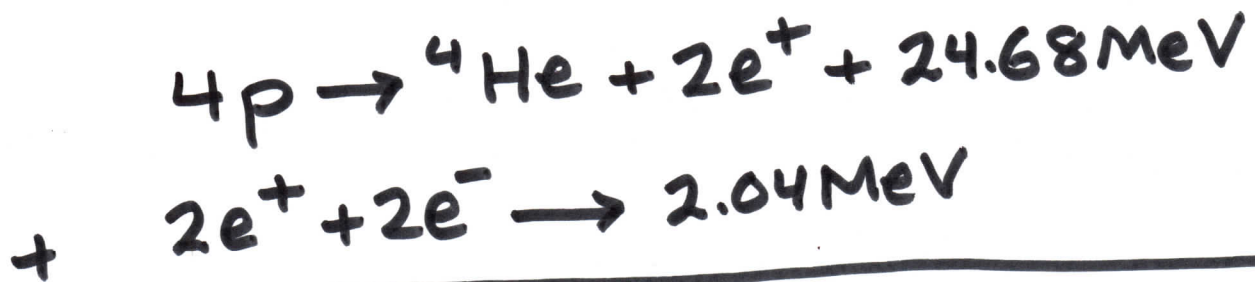 4p → ⁴He + 2e⁺ + 24.68 MeV
+ 2e⁺ + 2e⁻ → 2.04 MeV